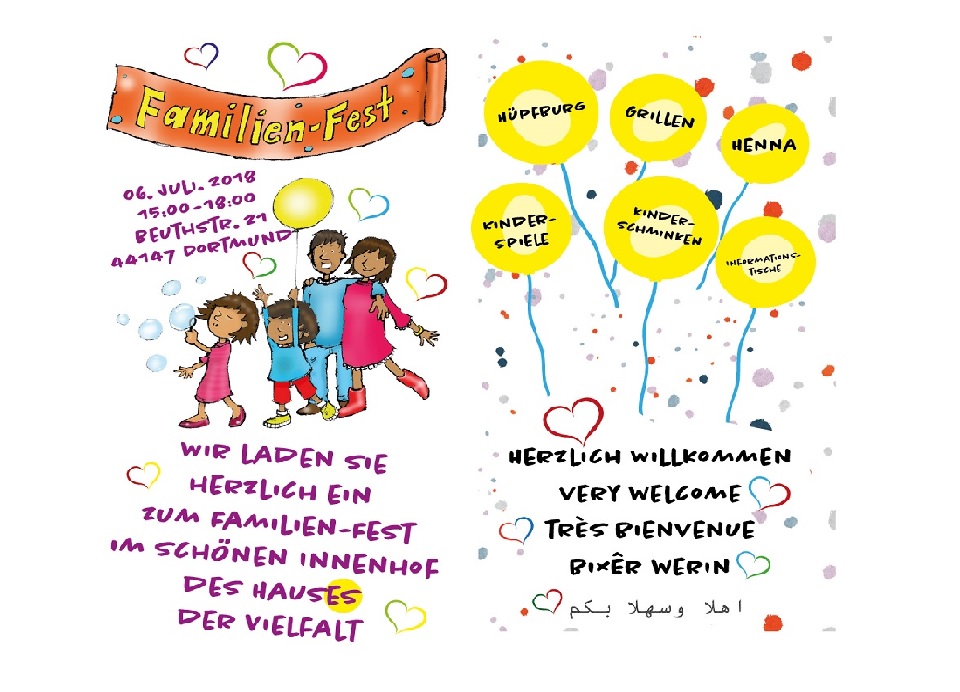 Familien-Fest
06. JULI. 2018
15:00-18:00
BEUTHSTR. 21
44147 DORTMUND
WIR LADEN SIE
HERZLICH EIN
ZUM FAMILIEN-FEST
IM SCHÖNEN INNENHOF
DES HAUSES
DER VIELFALT
HÜPFBURG
GRILLEN
HENNA
KINDER-
SPIELE
KINDER-
SCHMINKEN
INFORMATIONS-
TISCHE
HERZLICH WILLKOMMEN
VERY WELCOME
TRÈS BIENVENUE
BIXÊR WERIN
اهلا وسهلا بكم